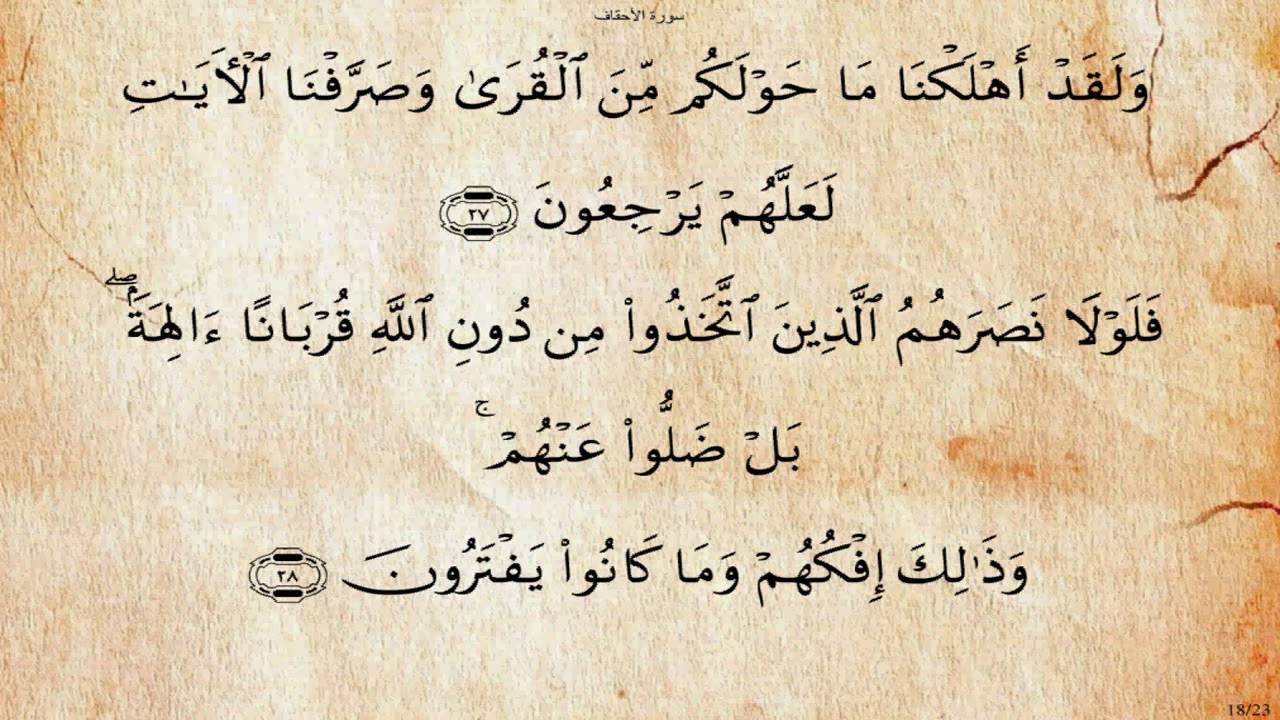 سورة الأحقاف
وَلَقَدۡ أَهۡلَكۡنَا مَا حَوۡلَكُم مِّنَ ٱلۡقُرَىٰ وَصَرَّفۡنَا ٱلۡأٓيَٰتِ
لَعَلَّهُمۡ يَرۡجِعُونَ ٢٧
فَلَوۡلَا نَصَرَهُمُ ٱلَّذِينَ ٱتَّخَذُواْ مِن دُونِ ٱللَّهِ قُرۡبَانًا ءَالِهَةَۢۖ
بَلۡ ضَلُّواْ عَنۡهُمۡۚ
وَذَٰلِكَ إِفۡكُهُمۡ وَمَا كَانُواْ يَفۡتَرُونَ ٢٨
18/23